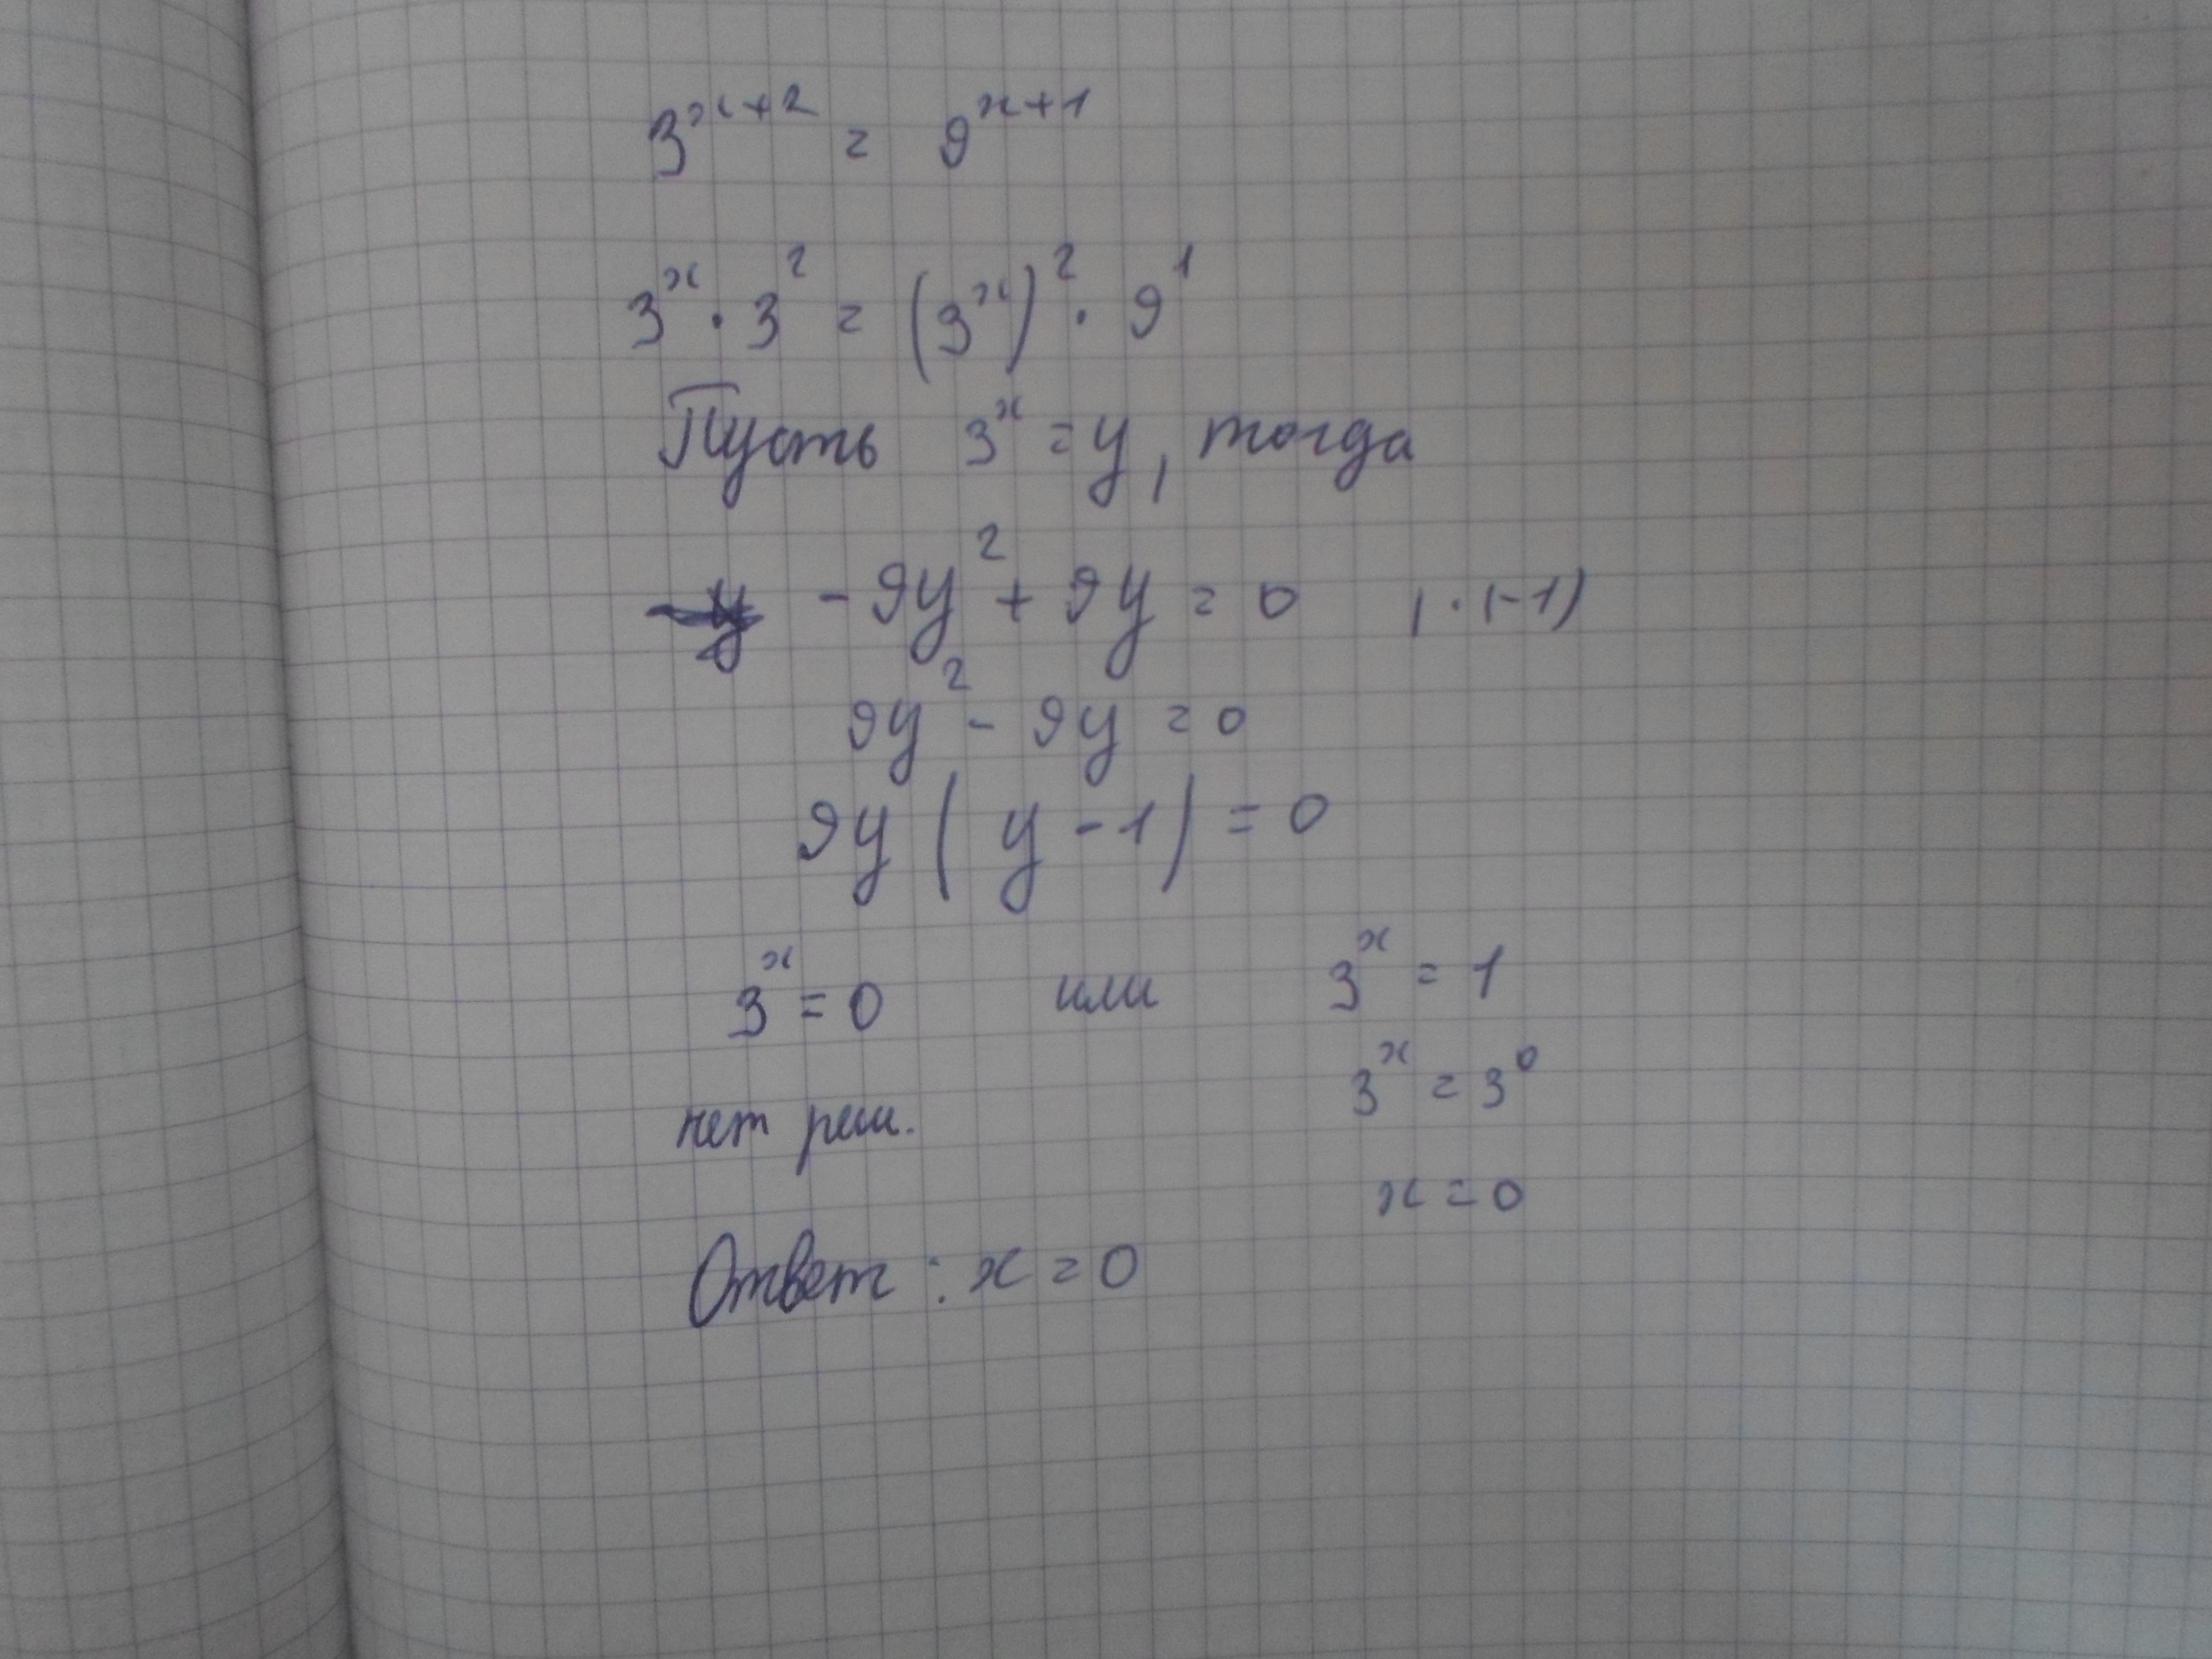 3^{x+2} = 9^{x+1}
3^x · 3^2 = (3^x)^2 · 9^1
Пусть 3^x = y, тогда
-9y^2 + 9y = 0 | · (-1)
9y^2 - 9y = 0
9y ( y - 1) = 0
3^x = 0 или 3^x = 1
3^x = 3^0
нет реш.
x = 0
Ответ : x = 0